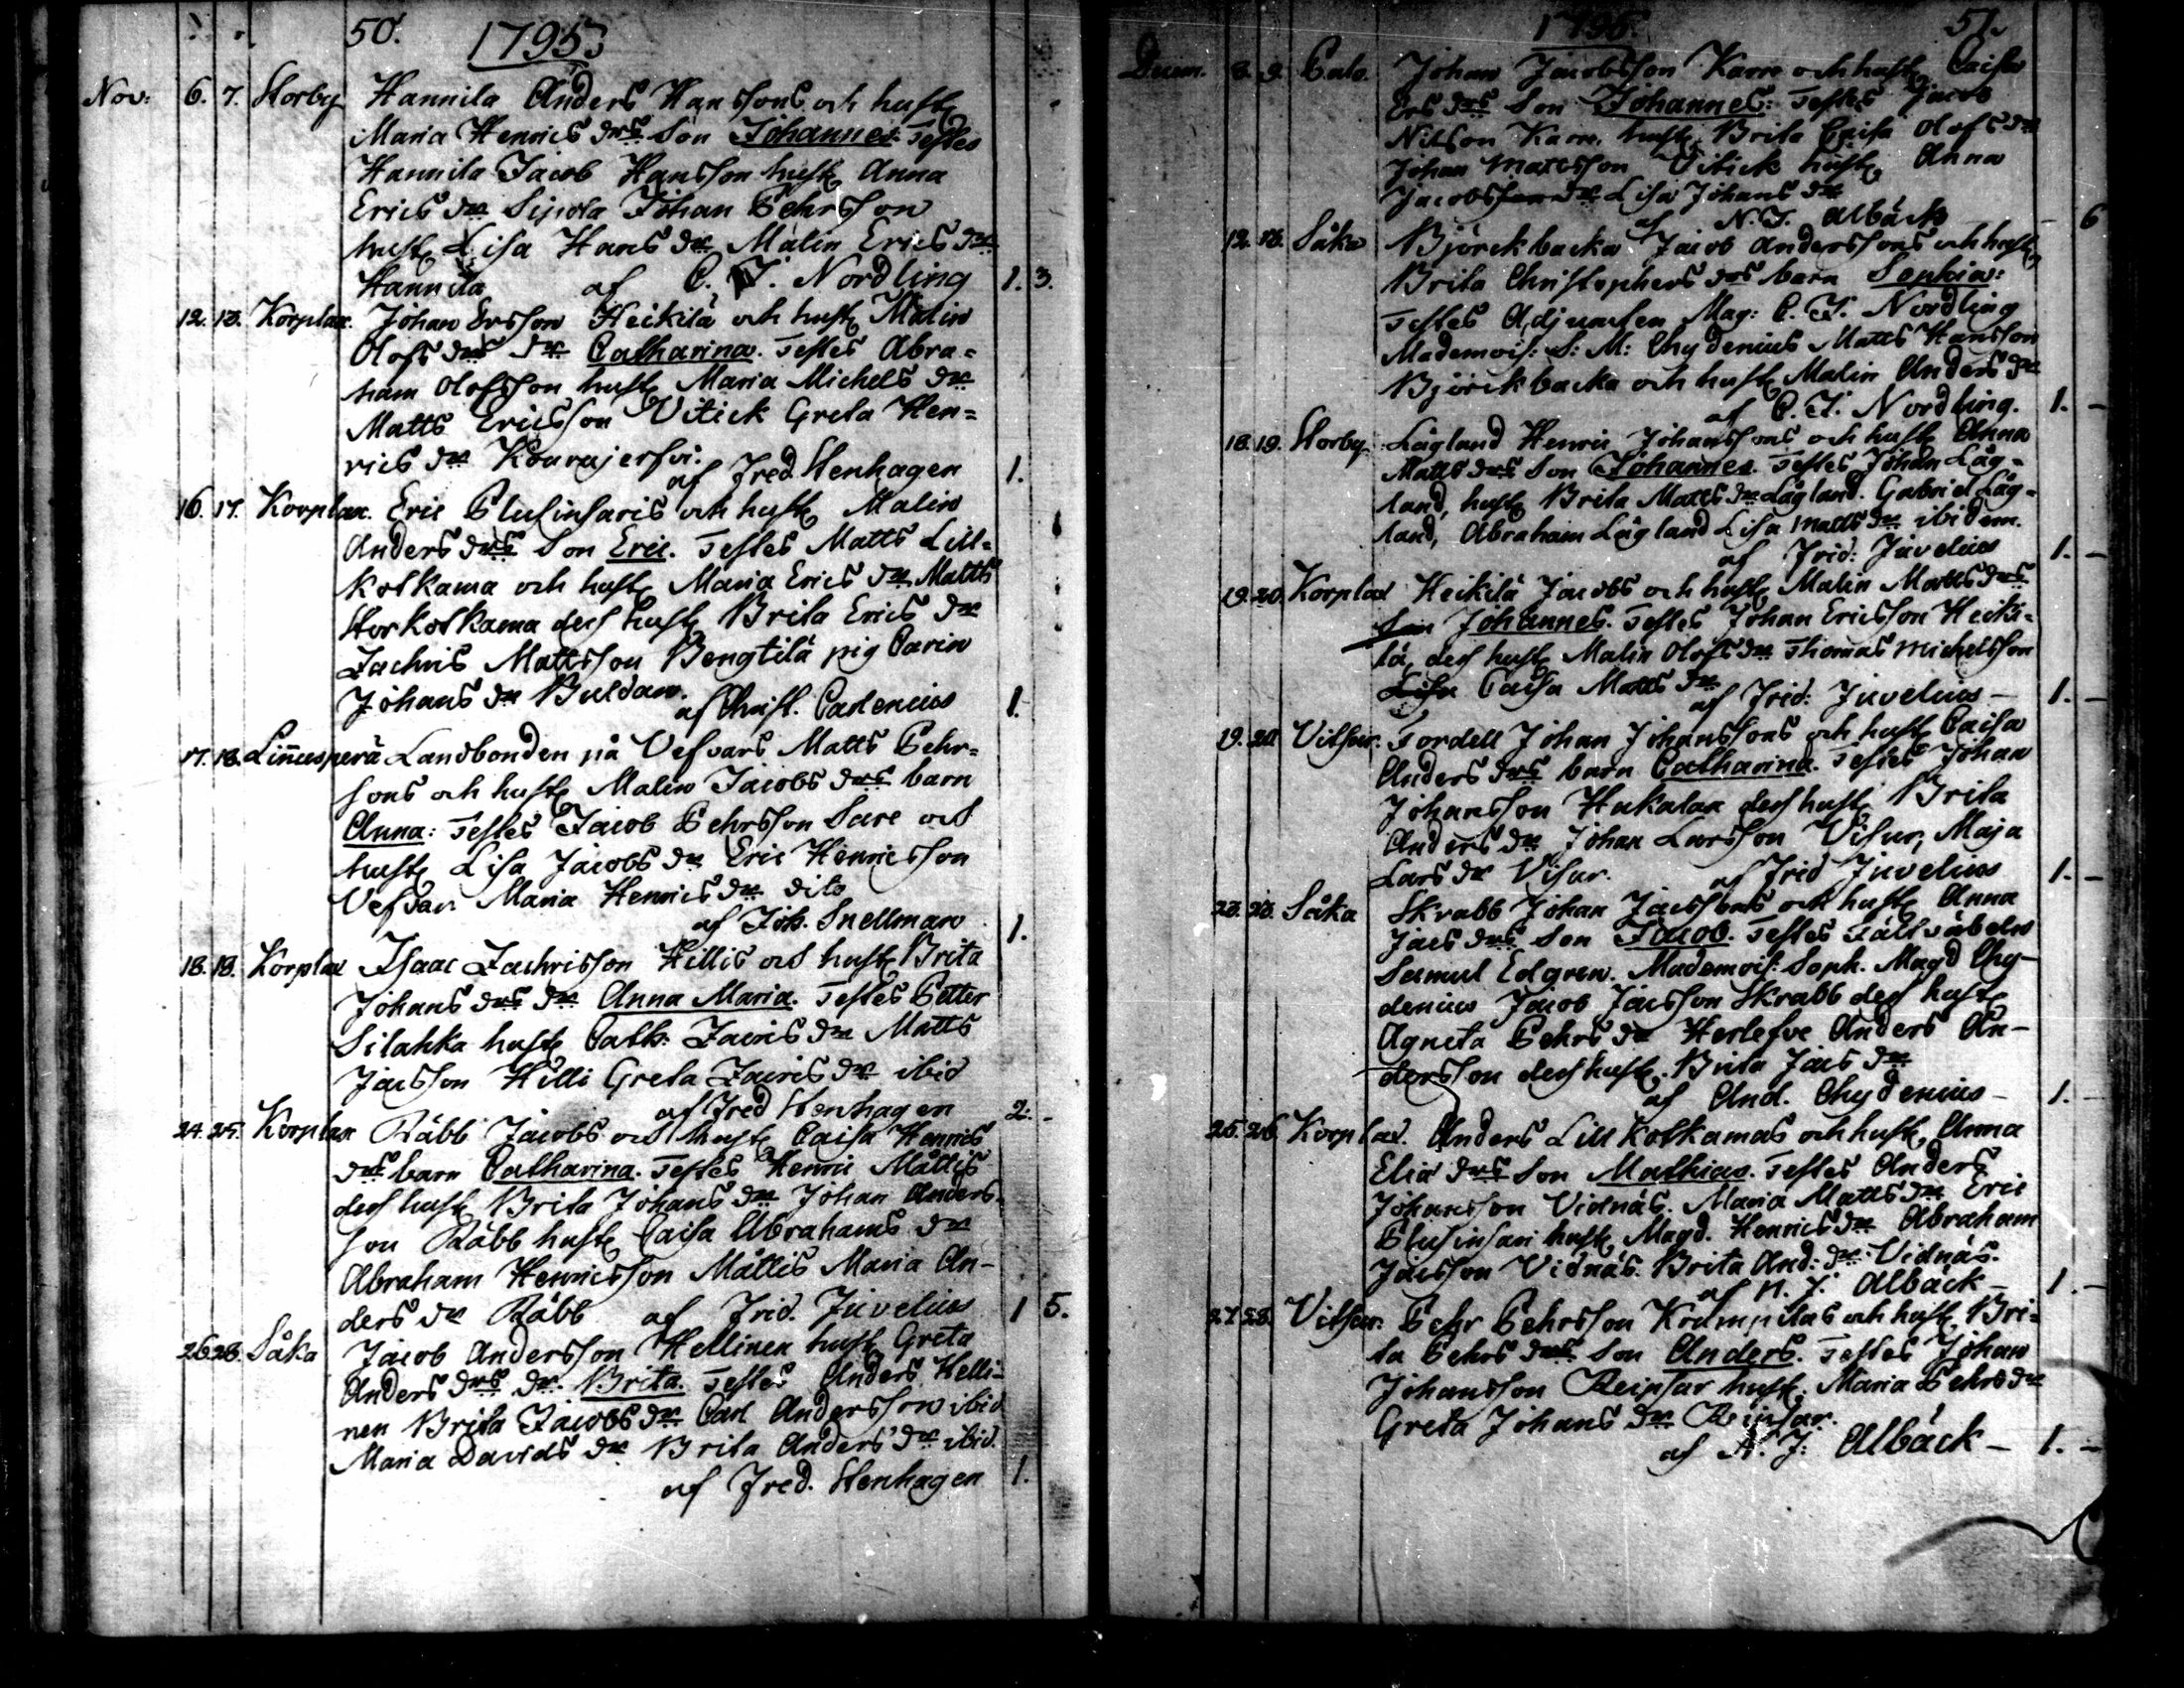 50.
1795
Nov: 6. 7. Storby Hannila Anders Hanssons och hust
Maria Henrics drs Son Johannes: Testes
Hannila Jacob Hansson hust Anna
Erics dr Sipola Johan Pehrsson
hust Lisa Hans dr Malin Erics dr
Hannila af C. F. Nordling 1. 3.
12. 13. Korplax. Johan Ersson Heikilä och hust Malin
Olofs drs dr Catharina. Testes Abra=
ham Olofsson hust Maria Michels dr
Matts Ericsson Vitick Greta Hen=
rics dr Kourajerfvi.
af Fred. Stenhagen 1.
16. 17. Korplax. Eric Plusinsaris och hust Malin
Anders drs Son Eric. Testes Matts Lill=
kotkama och hust Maria Erics dr Matts
Storkotkama des hust Brita Erics dr
Zachris Mattsson Bengtilä pig Carin
Johans dr Buldan.
af Christ. Carlenius 1.
17. 18. Linnusperä Landbonden på Vefvars Matts Pehr=
sons och hust Malin Jacobs drs barn
Anna: Testes Jacob Pehrsson Sare och
hust Lisa Jacobs dr Eric Henricsson
Vefvar Maria Henrics dr dito
af Joh. Snellman 1.
18. 19. Korplax Isaac Zachrisson Hillis och hust Brita
Johans drs dr Anna Maria. Testes Petter
Silahka hust Cath: Zacris dr Matts
Jacsson Hilli Greta Zacris dr ibid
af Fred Stenhagen 2. -
24. 25. Korplax Räbb Jacobs och hust Caisa Henrics
drs barn Catharina. Testes Henric Måttis
des hust Brita Johans dr Johan Anders=
son Räbb hust Caisa Abrahams dr
Abraham Henricsson Måttis Maria An-
ders dr Räbb af Frid. Juvelius 1 5.
26. 28. Såka Jacob Andersson Hellinen hust Greta
Anders drs dr. Brita. Testes Anders Helli-
nen Brita Jacobs dr Carl Andersson ibid
Maria Davids dr Brita Anders dr ibid.
af Fred. Stenhagen 1.
1795.
51.
Decem. 8. 9. Johan Jacobsson Karre och hust Caisa
Ers drs Son Johannes: Testes Jacob
Nilsson Karre, hust Brita Caisa Olofs dr
Johan Mattsson Vitick hust Anna
Jacobs dr Lisa Johans dr
af N. J. Albäck - 6
12. 13. Såka Björckbacka Jacob Anderssons och hust
Brita Christophers drs barn Sophia:
Testes Adjuncten Mag: C. F. Nordling
Mademois: S: M: Chydenius Matts Hansson
Björckbacka och hust Malin Anders dr
af C. F. Nordling. 1. -
18. 19. Storby Lågland Henric Johanssons och hust Anna
Matts drs Son Johannes. Testes Johan Låg-
land, hust Brita Matts dr Lågland. Gabriel Låg-
land, Abraham Lågland Lisa Matts dr ibidem.
af Frid: Juvelius 1. -
19. 20. Korplax Heikilä Jacobs och hust Malin Matts drs
Son Johannes. Testes Johan Ericsson Heiki-
lä, des hust Malin Olofs dr Thomas Michelsson
Caisa Matts dr
af Frid: Juvelius - 1. -
19. 20 Vitsar. Fordell Johan Johanssons och hust Caisa
Anders drs barn Catharina. Testes Johan
Johansson Hukalax des hust Brita
Anders dr Johan Larsson Visur, Maja
Lars dr Visur. af Frid Juvelius 1. -
23. 23. Såka Skrabb Johan Jacssons och hust Anna
Jacs drs Son Jacob. Testes Fältväbeln
Samuel Edgren. Mademois: Soph. Magd Chy-
denius Jacob Jacsson Skrabb des hust
Agneta Pehrs dr Herlefve Anders An-
dersson des hust. Brita Jacs dr
af And. Chydenius - 1. -
25. 26. Korplax. Anders Lill Kotkamas och hust, Anna
Eliæ drs Son Mathias. Testes Anders
Johansson Vidnäs. Maria Matts dr Eric
Plusinsari hust Magd. Henrics dr Abraham
Jacsson Vidnäs. Brita And: dr Vidnäs.
af N. J. Albäck - 1. -
27 28. Vitsar. Pehr Pehrsson Krumpilas och hust, Bri-
ta Pehrs drs Son Anders. Testes Johan
Johansson Reipsar hust. Maria Pehrs dr
Greta Johans dr Reipsar.
af N. J: Albäck - 1. -